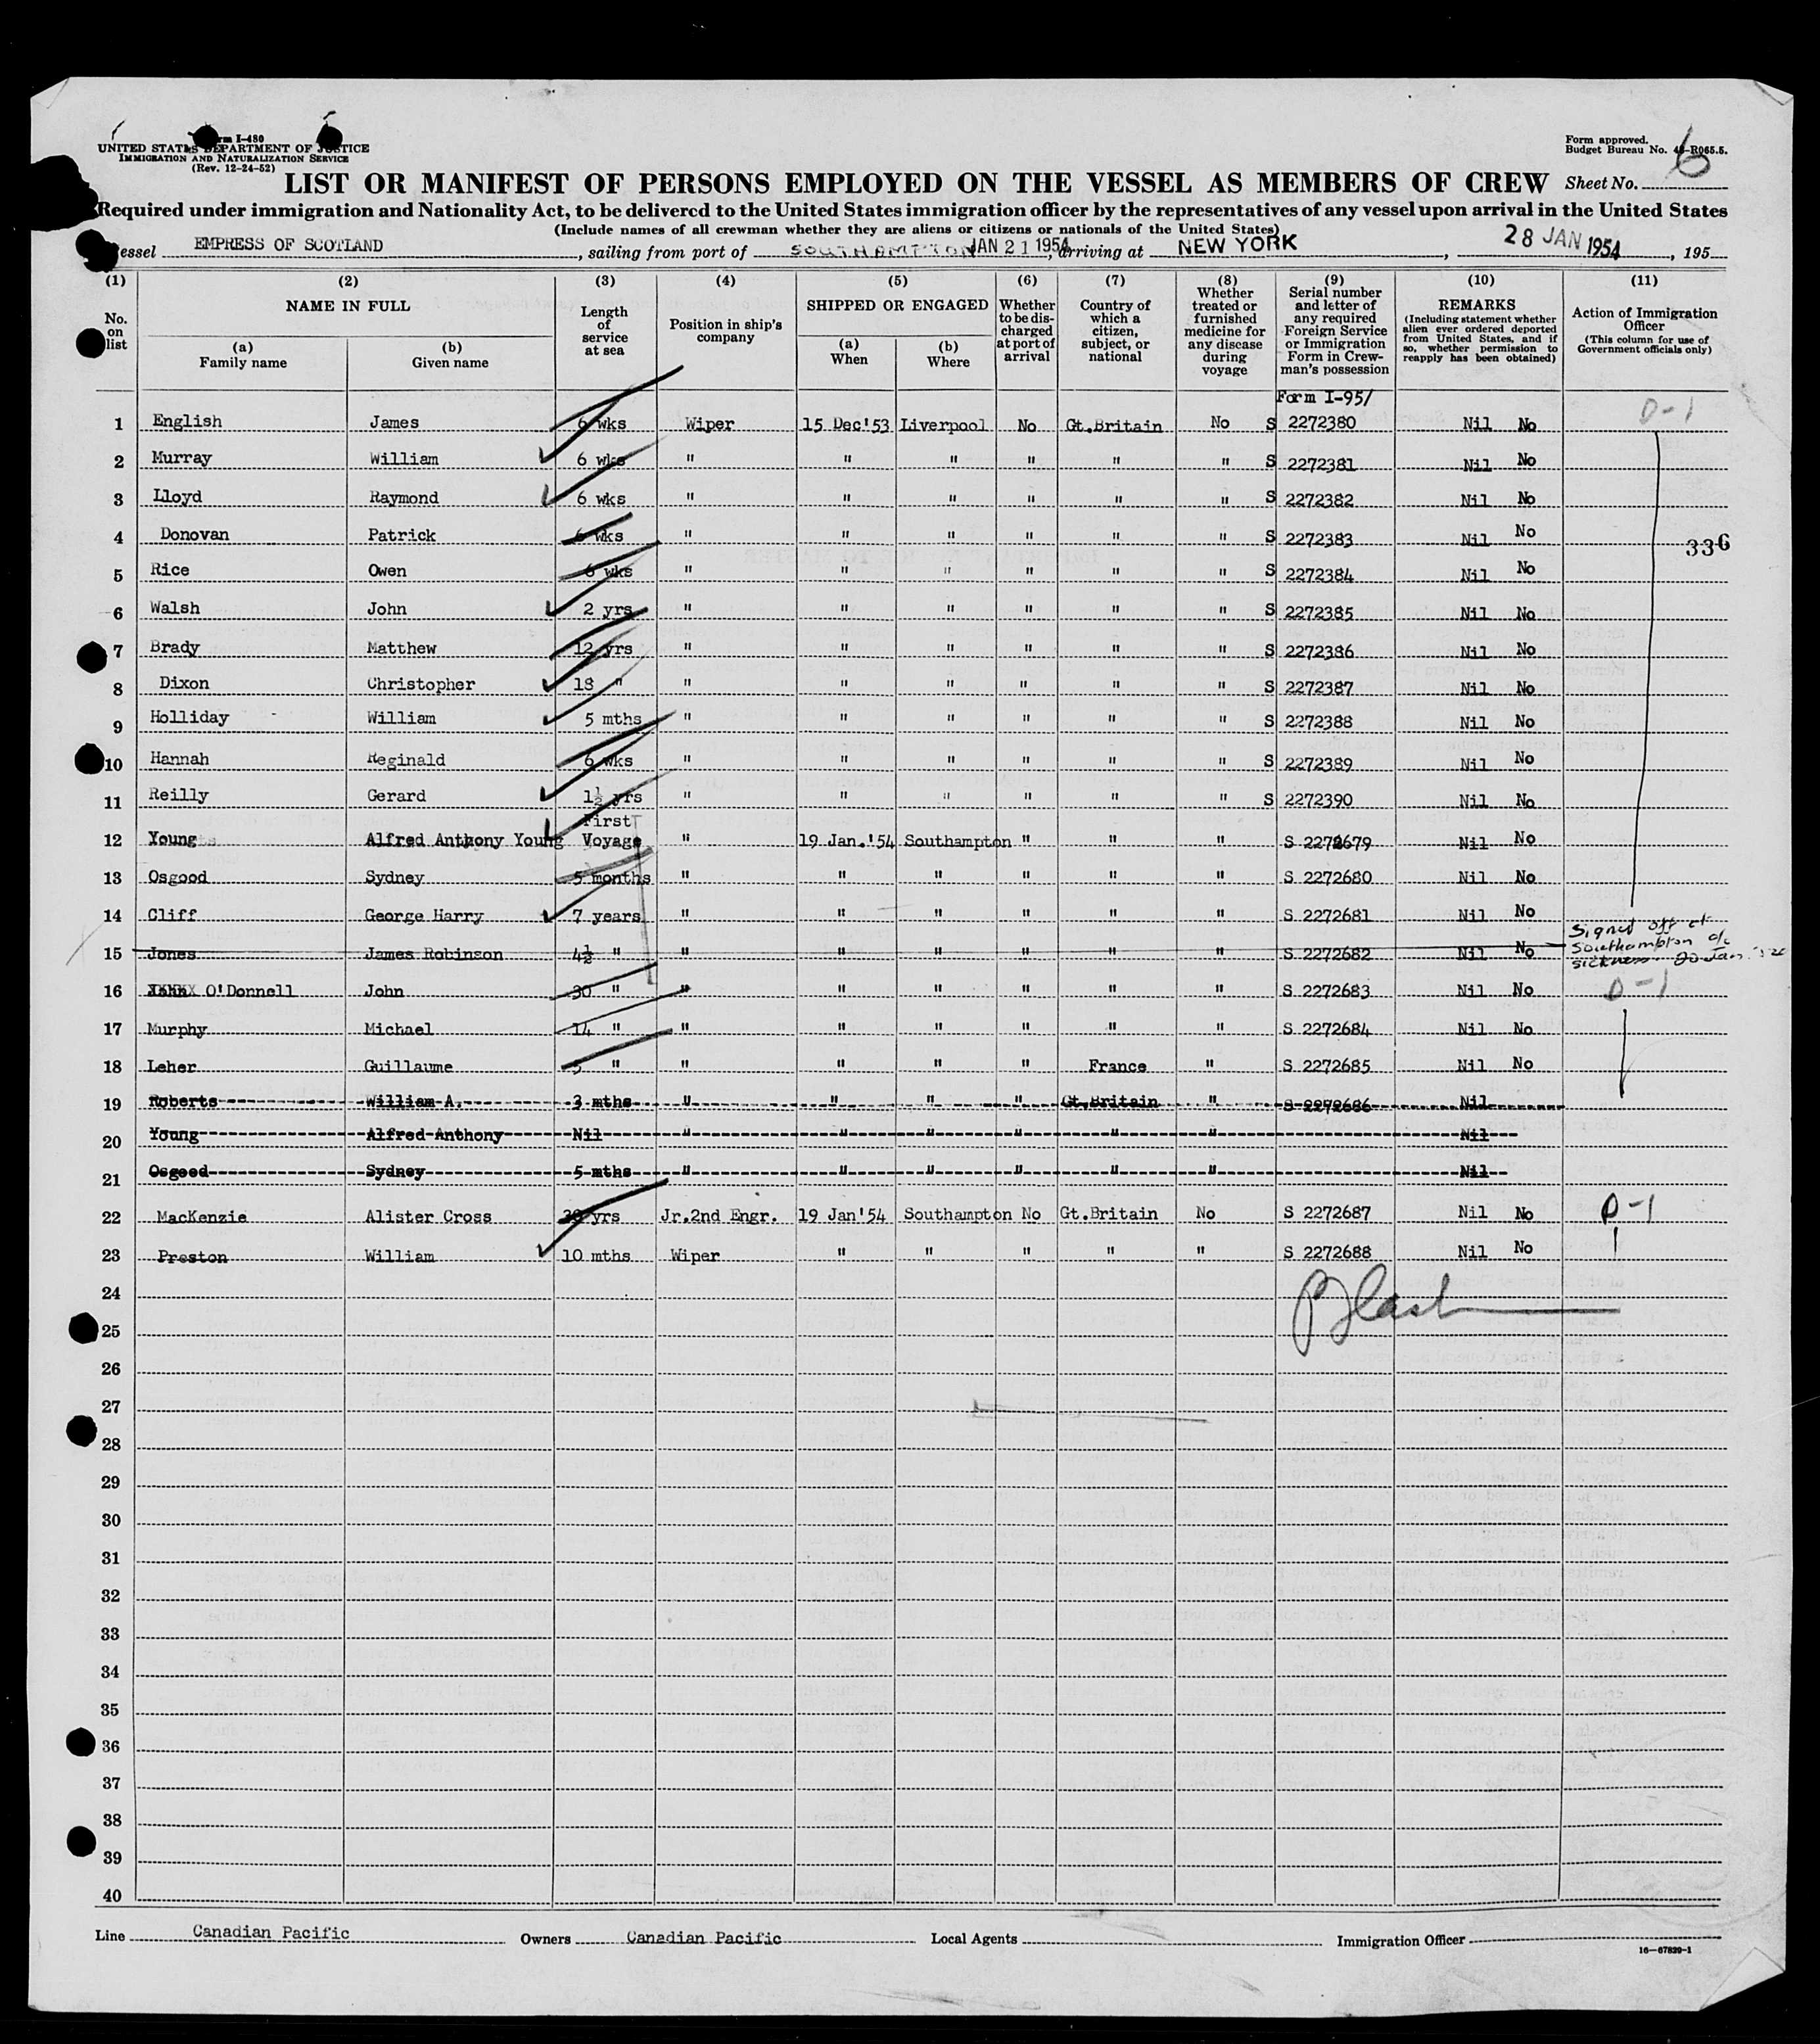 Form I-480
UNITED STATES DEPARTMENT OF JUSTICE
IMMIGRATION AND NATURALIZATION SERVICE
(Rev. 12-24-52)
Form approved.
Budget Bureau No. 43-R065.5.
LIST OR MANIFEST OF PERSONS EMPLOYED ON THE VESSEL AS MEMBERS OF CREW Sheet No. 6
Required under immigration and Nationality Act, to be delivered to the United States immigration officer by the representatives of any vessel upon arrival in the United States
(Include names of all crewman whether they are aliens or citizens or nationals of the United States)
Vessel EMPRESS OF SCOTLAND, sailing from port of SOUTHAMPTON JAN 21 1954, arriving at NEW YORK, 28 JAN 1954, 195
(1) No. on list
(2) NAME IN FULL
(a) Family name
(b) Given name
(3) Length of service at sea
(4) Position in ship's company
(5) SHIPPED OR ENGAGED
(a) When
(b) Where
(6) Whether to be discharged at port of arrival
(7) Country of which a citizen, subject, or national
(8) Whether treated or furnished medicine for any disease during voyage
(9) Serial number and letter of any required Foreign Service or Immigration Form in Crewman's possession
(10) REMARKS (Including statement whether alien ever ordered deported from United States, and if so, whether permission to reapply has been obtained)
(11) Action of Immigration Officer (This column for use of Government officials only)
Form I-95/
1 English James 6 wks Wiper 15 Dec'53 Liverpool No Gt.Britain No S 2272380 Nil No D-1
2 Murray William 6 wks " " " " " " S 2272381 Nil No
3 Lloyd Raymond 6 wks " " " " " " S 2272382 Nil No
4 Donovan Patrick 6 wks " " " " " " S 2272383 Nil No
336
5 Rice Owen 6 wks " " " " " " S 2272384 Nil No
6 Walsh John 2 yrs " " " " " " S 2272385 Nil No
7 Brady Matthew 12 yrs " " " " " " S 2272386 Nil No
8 Dixon Christopher 18 " " " " " " " S 2272387 Nil No
9 Holliday William 5 mths " " " " " " S 2272388 Nil No
10 Hannah Reginald 6 wks " " " " " " S 2272389 Nil No
11 Reilly Gerard 1½ yrs " " " " " " S 2272390 Nil No
12 Young Alfred Anthony Young First Voyage " 19 Jan.'54 Southampton " " " S 2272679 Nil No
13 Osgood Sydney 5 months " " " " " " S 2272680 Nil No
14 Cliff George Harry 7 years " " " " " " S 2272681 Nil No
15 Jones James Robinson 4½ " " " " " " " S 2272682 Nil No Signed off at Southampton o/c sickness 20 Jan.
16 O'Donnell John 30 " " " " " " " S 2272683 Nil No D-1
17 Murphy Michael 14 " " " " " " " S 2272684 Nil No
18 Leher Guillaume 5 " " " " " France " S 2272685 Nil No
19 Roberts William A. 3 mths " " " " Gt.Britain " S 2272686 Nil
20 Young Alfred Anthony Nil " " " " " " Nil
21 Osgood Sydney 5 mths " " " " " " Nil
22 MacKenzie Alister Cross yrs Jr.2nd Engr. 19 Jan'54 Southampton No Gt.Britain No S 2272687 Nil No D-1
23 Preston William 10 mths Wiper " " " " " S 2272688 Nil No
24
25
26
27
28
29
30
31
32
33
34
35
36
37
38
39
40
Line Canadian Pacific Owners Canadian Pacific Local Agents Immigration Officer
16—67829-1